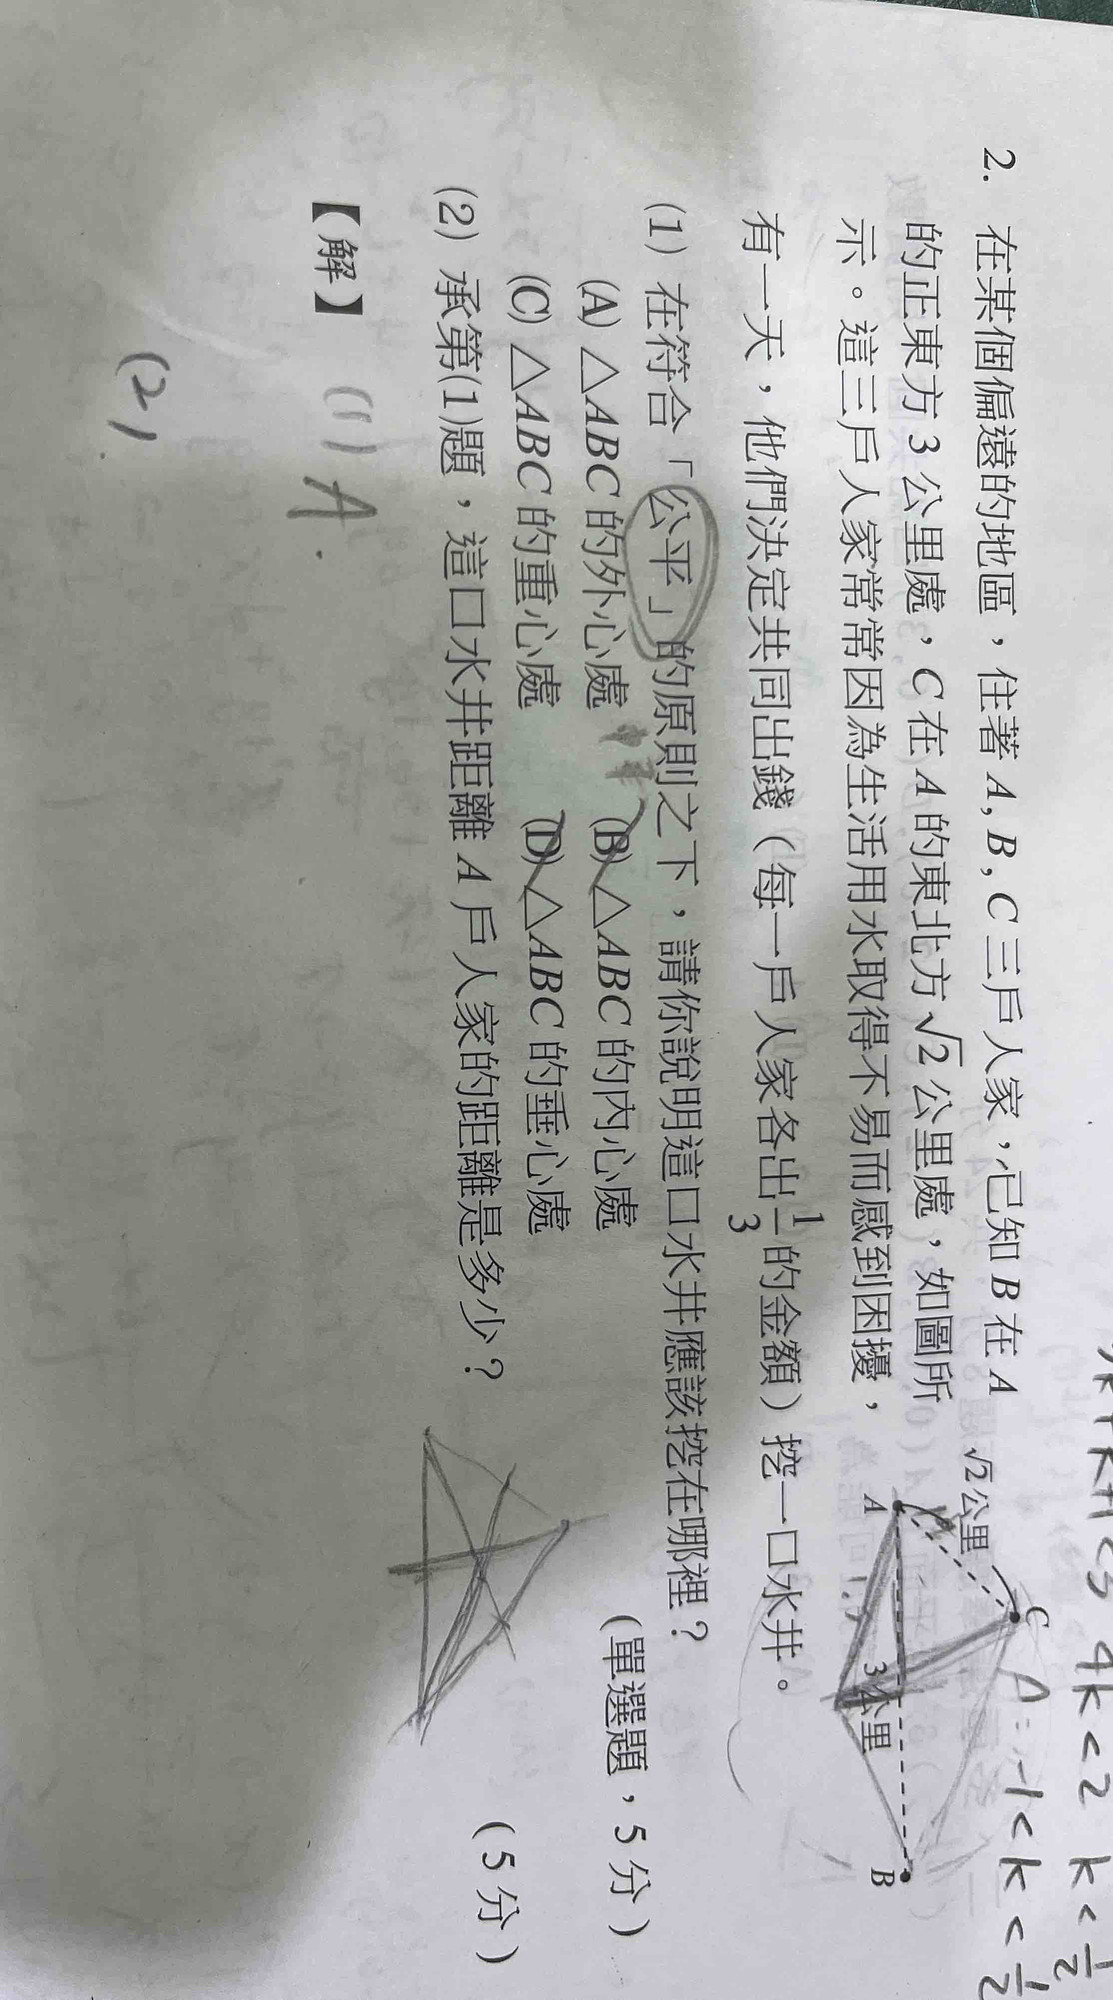 4k<2 k<1/2
A:-1<k<1/2
2. 在某個偏遠的地區，住著 A, B, C 三戶人家，已知 B 在 A
的正東方 3 公里處，C 在 A 的東北方 √2 公里處，如圖所
示。這三戶人家常常因為生活用水取得不易而感到困擾，
有一天，他們決定共同出錢（每一戶人家各出 1/3 的金額）挖一口水井。
√2公里
C
A
3公里
B
(1) 在符合「公平」的原則之下，請你說明這口水井應該挖在哪裡？
(單選題，5 分)
(A) △ABC 的外心處 (B) △ABC 的內心處
(C) △ABC 的重心處 (D) △ABC 的垂心處
(2) 承第(1)題，這口水井距離 A 戶人家的距離是多少？ (5 分)
【解】 (1) A.
(2)